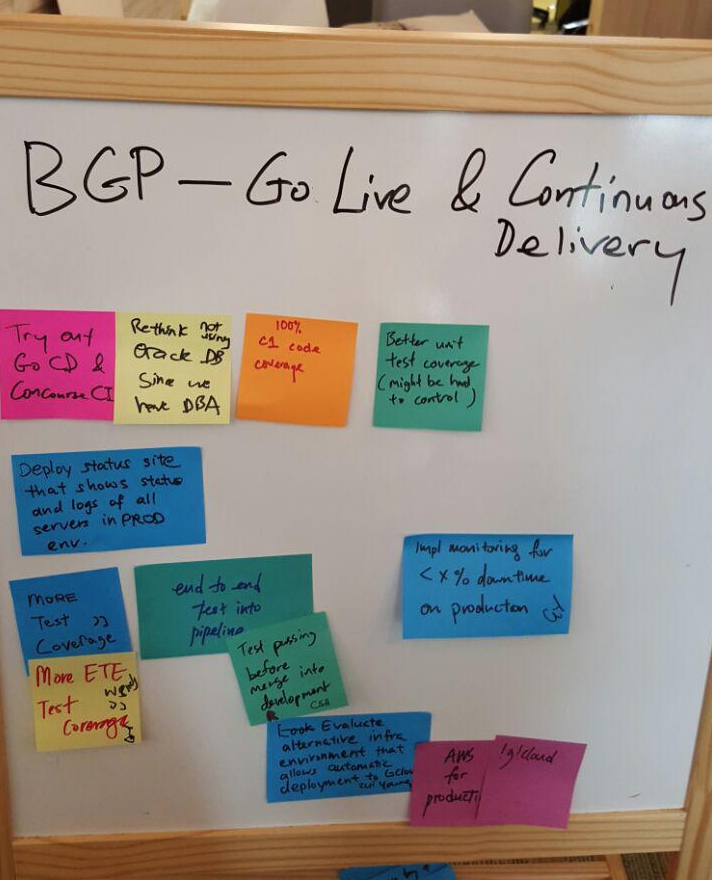 BGP — Go Live & Continuous
Delivery
Try out
Go CD &
Concourse CI
Rethink not
using
Oracle DB
Since we
have DBA
100%
C1 code
coverage
Better unit
test coverage
(might be hard
to control)
Deploy status site
that shows status
and logs of all
servers in PROD
env.
Impl monitoring for
< x % downtime
on production
MORE
Test
Coverage
end to end
test into
pipeline
More ETE
Test
Coverage
Test passing
before
merge into
development
Look Evaluate
alternative infra
environment that
allows automatic
deployment to Gclou
AWS
for
producti
!g!cloud